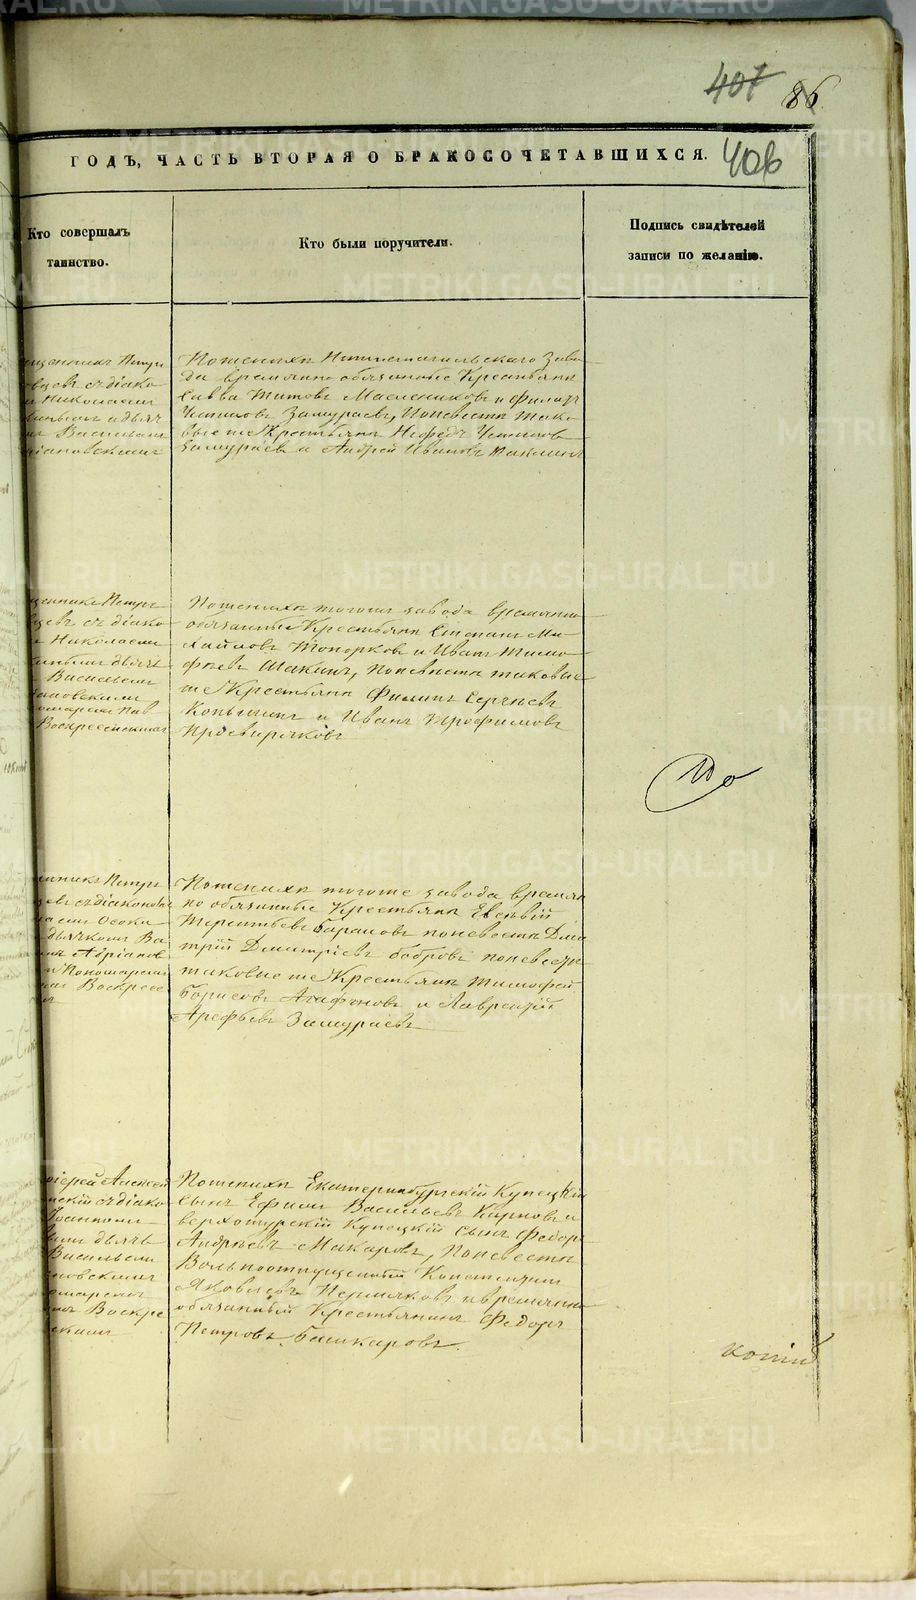 407 86
ГОДЪ, ЧАСТЬ ВТОРАЯ О БРАКОСОЧЕТАВШИХСЯ.
406
Кто совершалъ
таинство.
Кто были поручители.
Подпись свидѣтелей
записи по желанію.
Петръ
съ діако
Николаемъ
и дьяч
Васильемъ
По женихѣ Нижнетагильскаго Заво
да временно обязанные Крестьяне
Савва Титовъ Масленников и Филатъ
Устиновъ Замураевъ, По невестѣ тако
вые же Крестьяне Нефедъ Устинов
Замураев и Андрей Иванов
Петръ
съ діако
Николаемъ
дьяч
Васильемъ
Воскресенскимъ
По женихѣ тогоже завода временно
обязанные Крестьяне Степанъ Ми
хайловъ Топорков и Иванъ Тимо
фѣев Шакинъ, По невѣстѣ таковые
же Крестьяне Филипъ Сергѣевъ
Копышин и Иванъ Трофимовъ
Просвиряковъ
Петръ
съ діакономъ
Осоки
дьячкомъ Ва
Адріанов
и Пономаремъ
Воскресе
По женихѣ тогоже завода времен
но обязанные Крестьяне Евсевій
Терентьевъ Баранов по невестѣ Дми
трій Дмитріевъ Бобровъ по невестѣ
таковые же Крестьяне Тимофей
Борисовъ Агафонов и Лаврентій
Арефьевъ Замураевъ
іерей Алексей
съ діако
Іоанномъ
дьяч
Васильемъ
Воскре
скимъ
По женихѣ Екатеринбургскій Купецкій
сынъ Ефимъ Васильевъ Карнов и
верхотурскій Купецкій сынъ Федор
Андреевъ Макаровъ, По невестѣ
Вольноотпущенный Константин
Яковлевъ Пермяковъ и временно
обязанный Крестьянинъ Федоръ
Петровъ Башкаровъ.
копія
METRIKI.GASO-URAL.RU